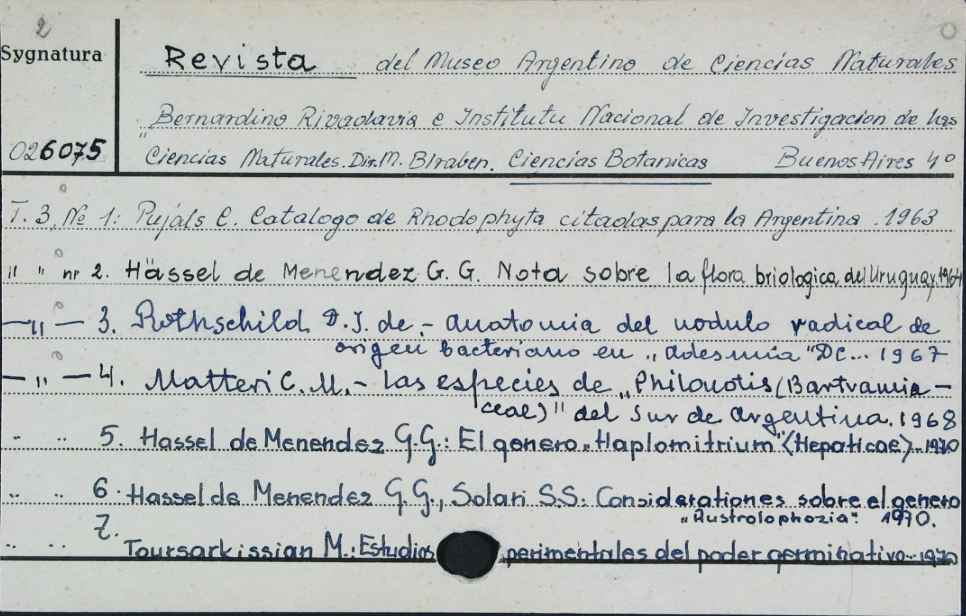 2
Sygnatura
026075
Revista del Museo Argentino de Ciencias Naturales
"Bernardino Rivadavia e Institutu Nacional de Investigacion de las
Ciencias Naturales. Dir. M. BIraben. Ciencias Botanicas Buenos Aires 4°
T. 3, № 1: Pujals C. Catalogo de Rhodophyta citadas para la Argentina. 1963
" " nr 2. Hässel de Menendez G. G. Nota sobre la flora briologica del Uruguay. 1964
— " — 3. Rothschild D. I. de.- Anatomia del nodulo radical de
origen bacteriano en „Adesmia" DC... 1967
— " — 4. Matteri C. M.- Las especies de „Philonotis (Bartramia-
ceae)" del sur de Argentina. 1968
" " 5. Hassel de Menendez G.G.: El genero „Haplomitrium" (Hepaticae).. 1970
" " 6. Hassel de Menendez G.G., Solari S.S.: Considerationes sobre el genero
„Austrolophozia". 1970.
" " 7. Toursarkissian M.: Estudios perimentales del poder germinativo.. 1970